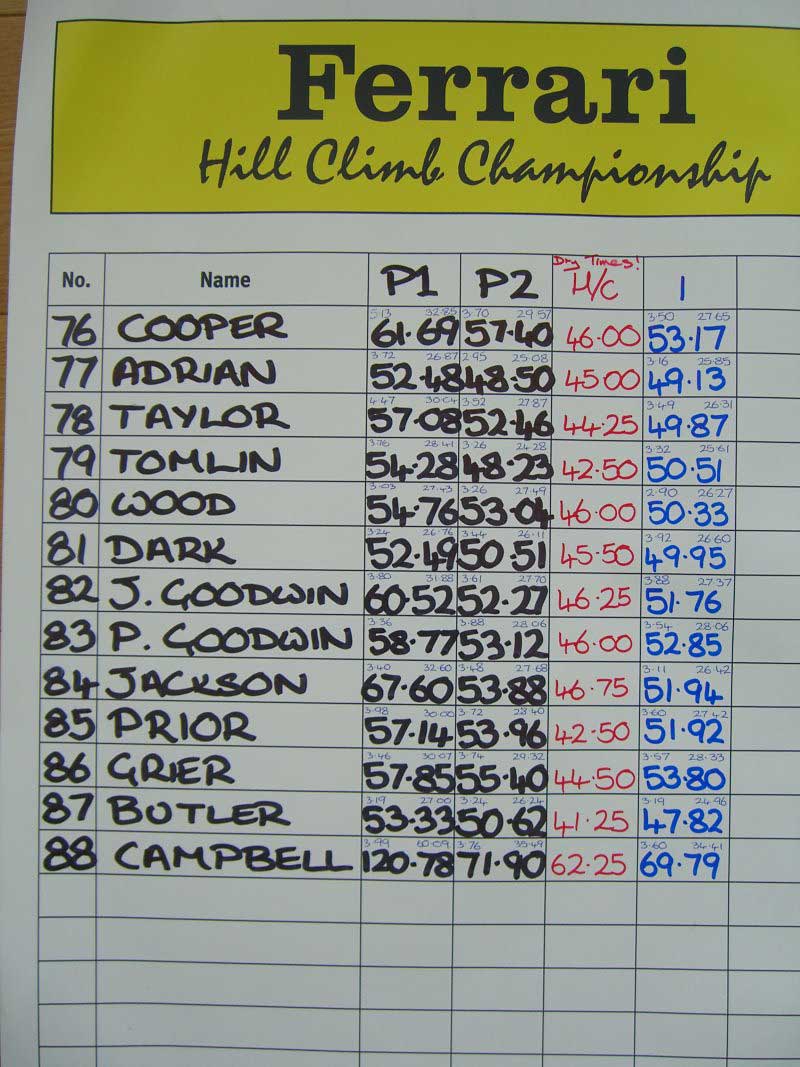 Ferrari
Hill Climb Championship
Dry Times!
No. Name P1 P2 H/C 1
5·13 32·85 3·70 29·57 3·50 27·65
76 COOPER 61·69 57·40 46·00 53·17
3·72 26·87 2·95 25·08 3·16 25·85
77 ADRIAN 52·48 48·50 45 00 49·13
4·47 30·04 3·52 27·87 3·49 26·31
78 TAYLOR 57·08 52·46 44·25 49·87
3·76 28·41 3·26 24·28 3·32 25·61
79 TOMLIN 54·28 48·23 42·50 50·51
3·03 27·43 3·26 27·49 2·90 26·27
80 WOOD 54·76 53·04 46·00 50·33
3·24 26·76 3·44 26·11 3·92 26·60
81 DARK 52·49 50·51 45·50 49·95
3·80 31·88 3·61 27·70 3·88 27·37
82 J. GOODWIN 60·52 52·27 46·25 51·76
3·36 3·88 28·06 3·54 28·06
83 P. GOODWIN 58·77 53·12 46·00 52·85
3·40 32·60 3·48 27·68 3·11 26·42
84 JACKSON 67·60 53·88 46·75 51·94
3·98 30·00 3·72 28·40 3·60 27·42
85 PRIOR 57·14 53·96 42·50 51·92
3·46 30·07 3·74 29·32 3·57 28·33
86 GRIER 57·85 55·40 44·50 53·80
3·19 27·00 3·24 26·24 3·19 24·96
87 BUTLER 53·33 50·62 41·25 47·82
3·99 60·09 3·76 35·49 3·60 34·41
88 CAMPBELL 120·78 71·90 62·25 69·79